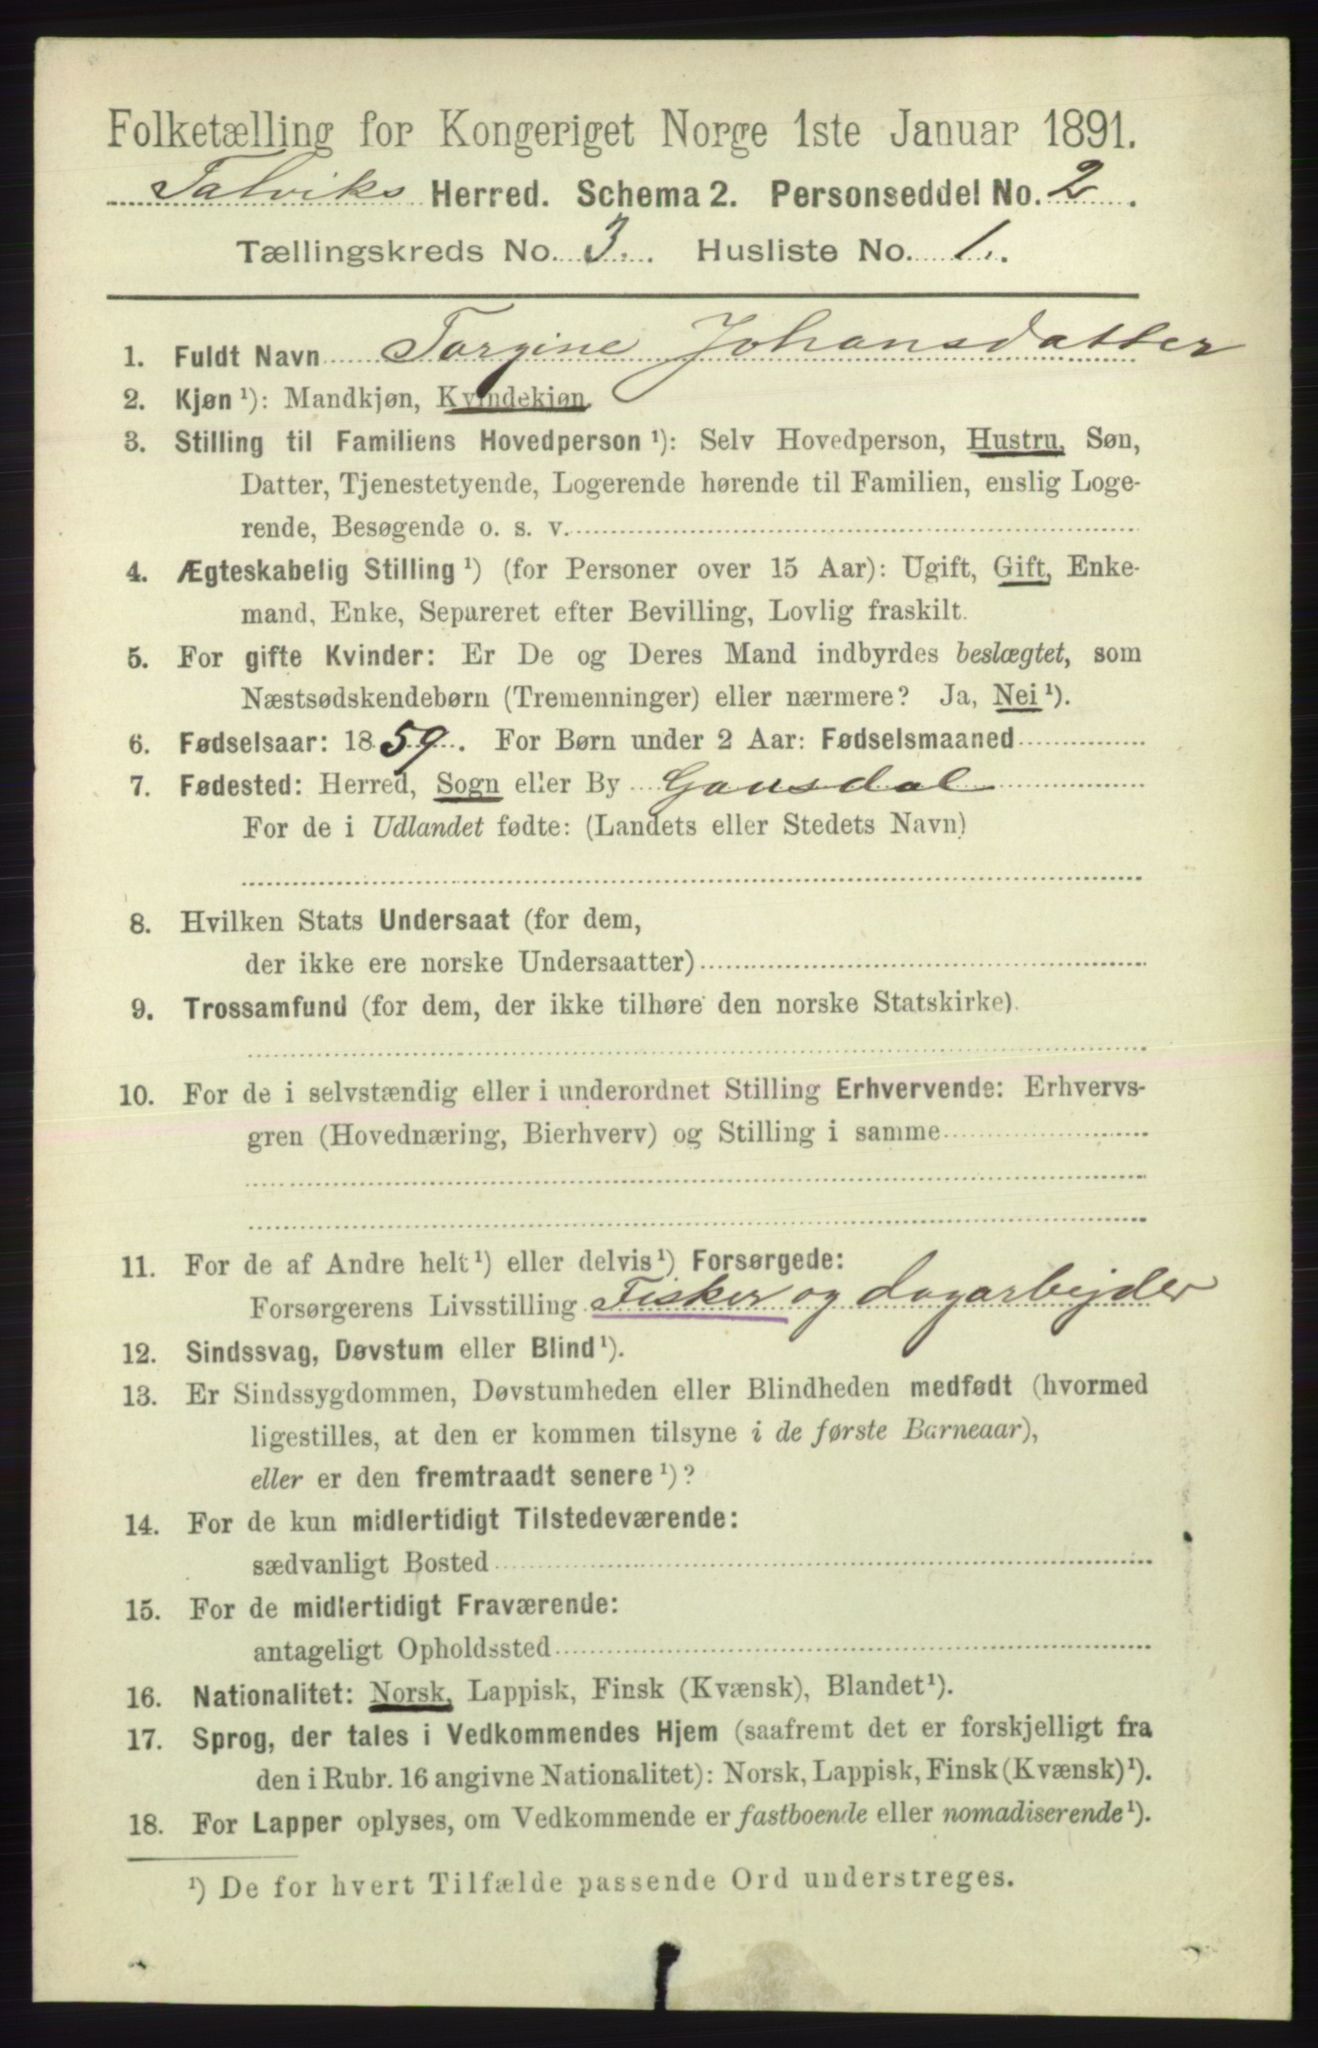 Folketælling for Kongeriget Norge 1ste Januar 1891.
Talviks Herred. Schema 2. Personseddel No. 2.
Tællingskreds No. 3. Husliste No. 1.
1. Fuldt Navn Torgine Johansdatter
2. Kjøn ¹): Mandkjøn, Kvindekjøn.
3. Stilling til Familiens Hovedperson ¹): Selv Hovedperson, Hustru, Søn,
Datter, Tjenestetyende, Logerende hørende til Familien, enslig Loge-
rende, Besøgende o. s. v.
4. Ægteskabelig Stilling ¹) (for Personer over 15 Aar): Ugift, Gift, Enke-
mand, Enke, Separeret efter Bevilling, Lovlig fraskilt.
5. For gifte Kvinder: Er De og Deres Mand indbyrdes beslægtet, som
Næstsødskendebørn (Tremenninger) eller nærmere? Ja, Nei ¹).
6. Fødselsaar: 1859. For Børn under 2 Aar: Fødselsmaaned
7. Fødested: Herred, Sogn eller By Gausdal
For de i Udlandet fødte: (Landets eller Stedets Navn)
8. Hvilken Stats Undersaat (for dem,
der ikke ere norske Undersaatter)
9. Trossamfund (for dem, der ikke tilhøre den norske Statskirke).
10. For de i selvstændig eller i underordnet Stilling Erhvervende: Erhvervs-
gren (Hovednæring, Bierhverv) og Stilling i samme
11. For de af Andre helt ¹) eller delvis ¹) Forsørgede:
Forsørgerens Livsstilling Fisker og dagarbejder
12. Sindssvag, Døvstum eller Blind ¹).
13. Er Sindssygdommen, Døvstumheden eller Blindheden medfødt (hvormed
ligestilles, at den er kommen tilsyne i de første Barneaar),
eller er den fremtraadt senere ¹)?
14. For de kun midlertidigt Tilstedeværende:
sædvanligt Bosted
15. For de midlertidigt Fraværende:
antageligt Opholdssted
16. Nationalitet: Norsk, Lappisk, Finsk (Kvænsk), Blandet ¹).
17. Sprog, der tales i Vedkommendes Hjem (saafremt det er forskjelligt fra
den i Rubr. 16 angivne Nationalitet): Norsk, Lappisk, Finsk (Kvænsk) ¹).
18. For Lapper oplyses, om Vedkommende er fastboende eller nomadiserende ¹).
¹) De for hvert Tilfælde passende Ord understreges.